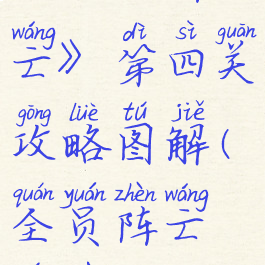 wáng dì sì guān
亡》第四关
gōng lüè tú jiě
攻略图解(
quán yuán zhèn wáng
全员阵亡